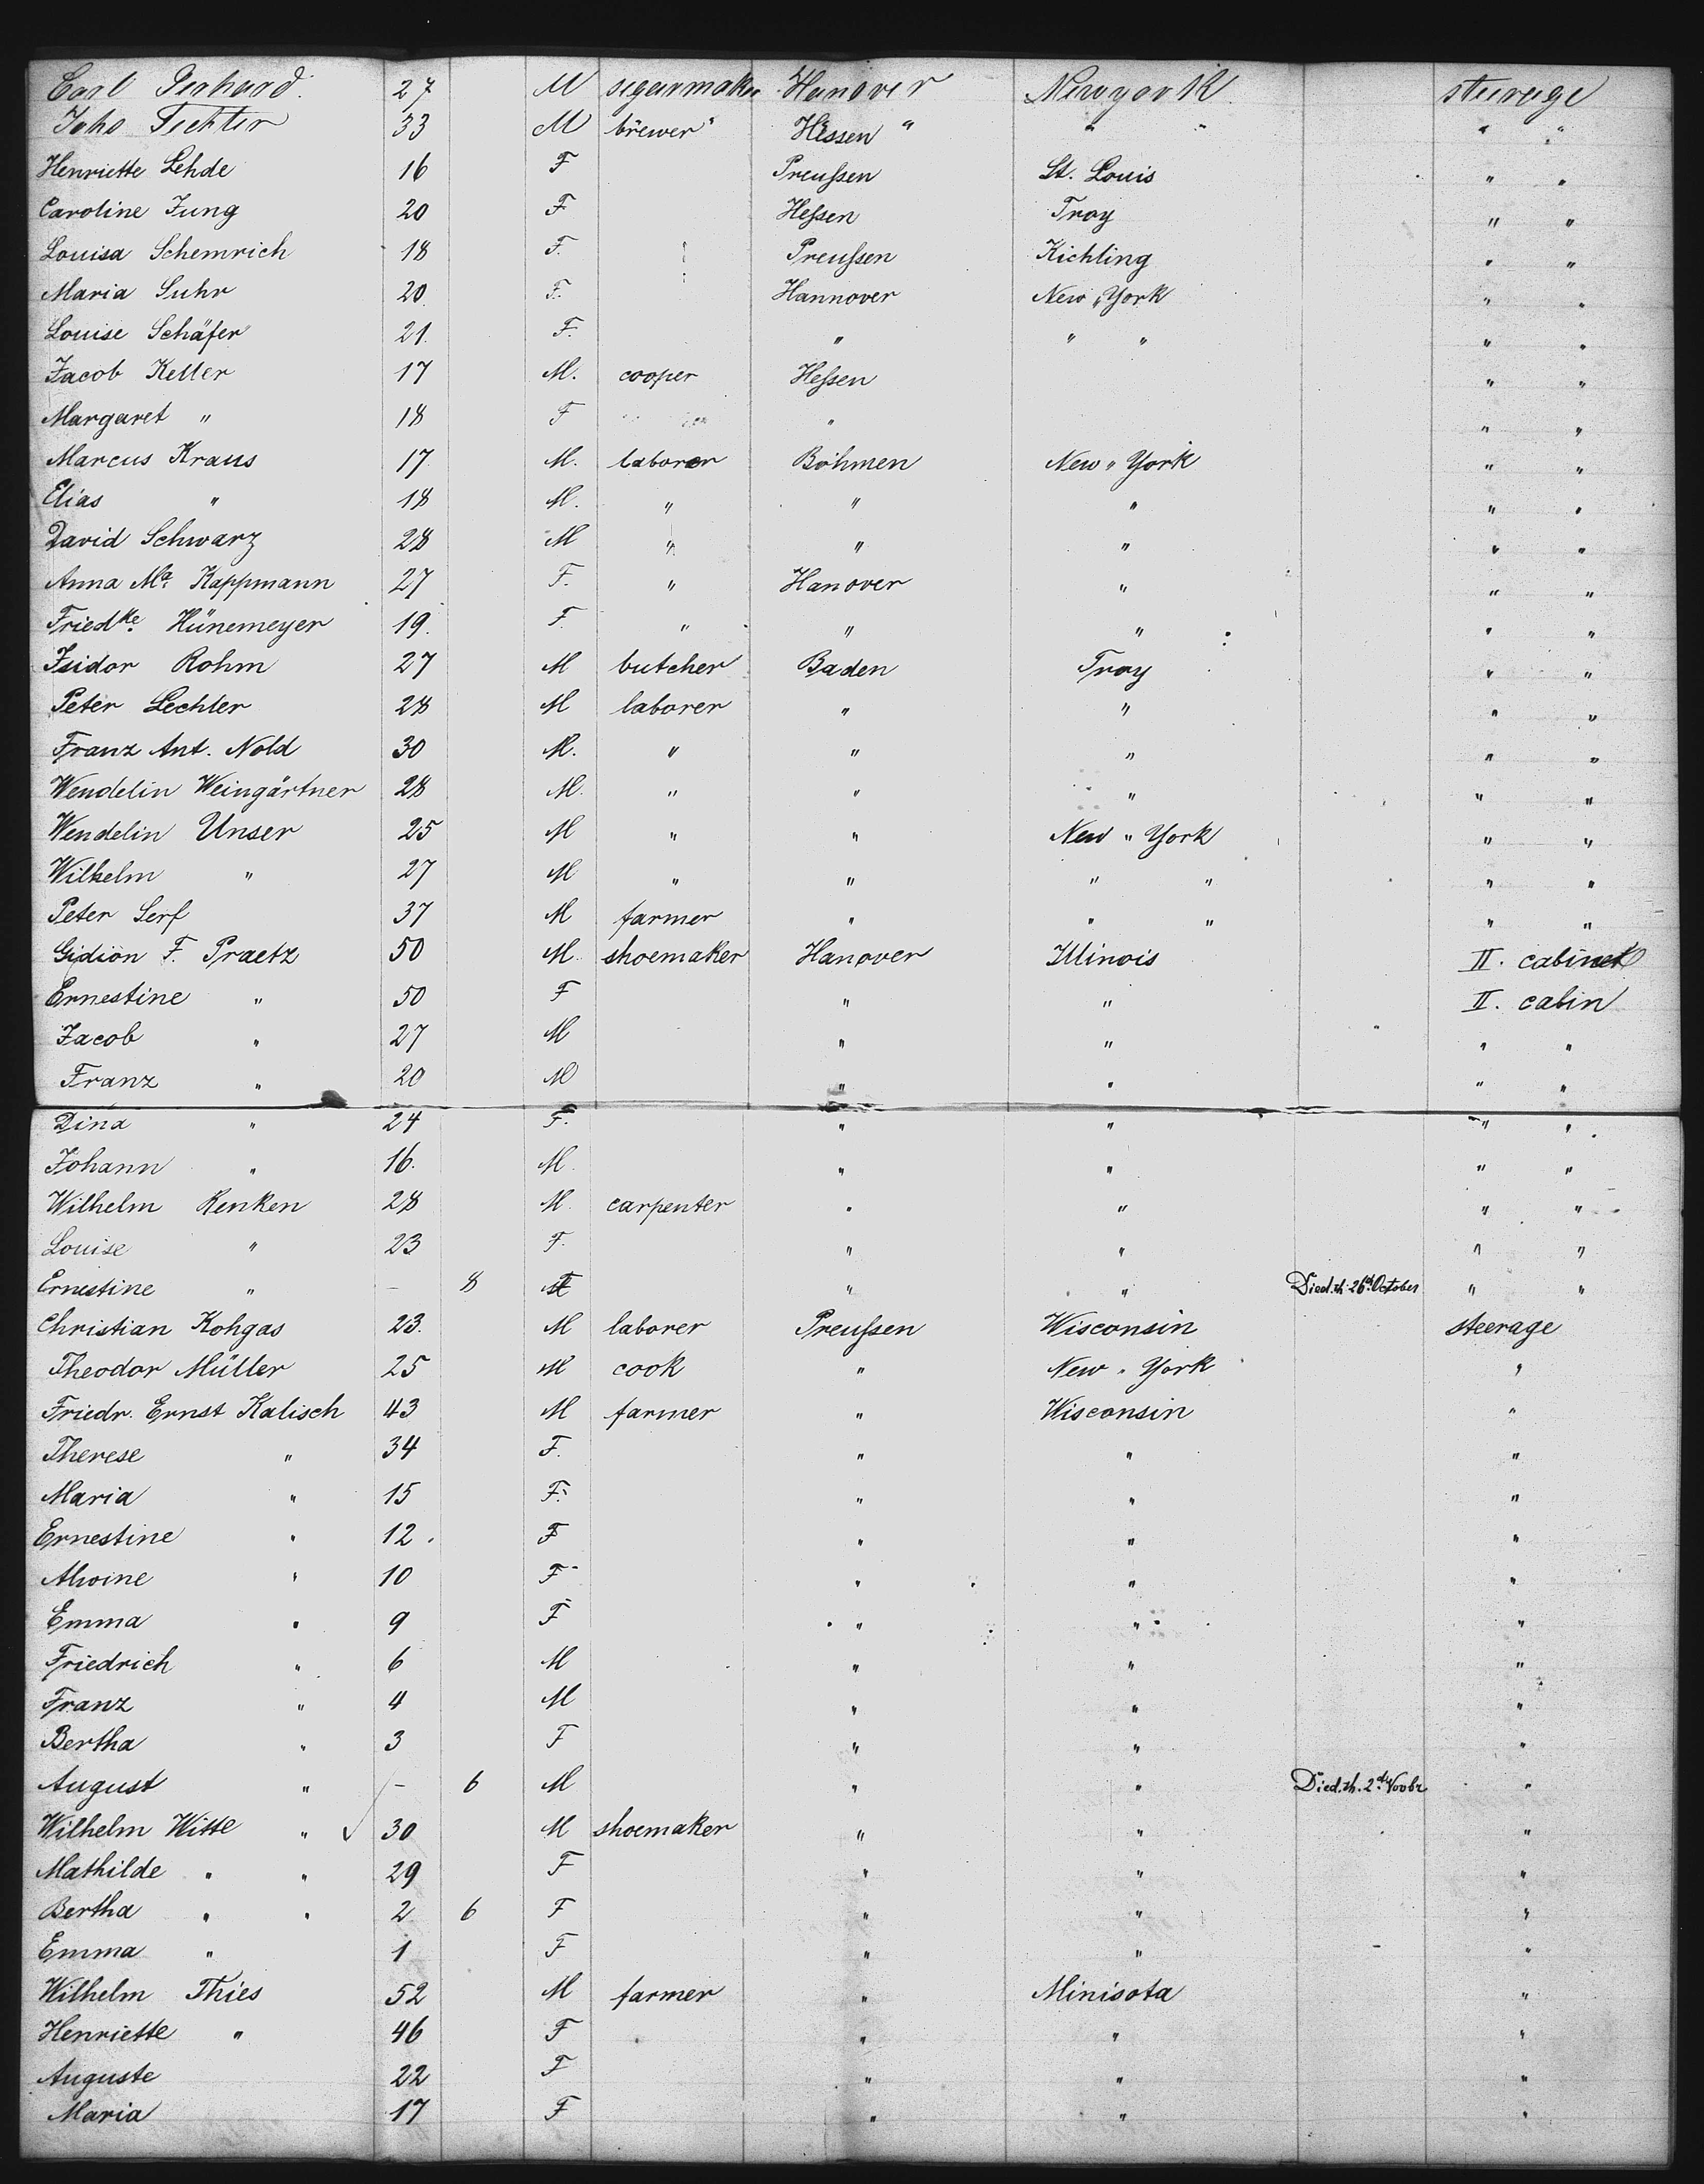 Carl Gerhard. 27 M segarmaker Hanover Newyork steerage
Joho Fichter 33 M brewer " Hessen " " " " "
Henriette Lehde 16 F Preußen St. Louis " "
Caroline Jung 20 F Heßen Troy " "
Louisa Schemrich 18 F. Preußen Kichling " "
Maria Suhr 20 F. Hannover New " York " "
Louise Schäfer 21. F. " " " " "
Jacob Keller 17 M. cooper Heßen " "
Margaret " 18 F " " "
Marcus Kraus 17 M. laborer Böhmen New " York " "
Elias " 18 M. " " " " "
David Schwarz 28 M " " " " "
Anna Ma. Kappmann 27 F. " Hanover " " "
Friedke. Hünemeyer 19. F. " " " " "
Isidor Rohm 27 M butcher Baden Troy " "
Peter Lechler 28 M laborer " " " "
Franz Ant. Nold 30 M. " " " " "
Wendelin Weingärtner 28 M. " " " " "
Wendelin Unser 25 M " " New " York " "
Wilhelm " 27 M " " " " " "
Peter Serf 37 M farmer " " " " "
Gidion F. Praetz 50 M. shoemaker Hanover Illinois II. cabinet
Ernestine " 50 F " " II. cabin
Jacob " 27 M " " " "
Franz " 20 M " " " "
Dina " 24 F. " " " "
Johann " 16. M. " " " "
Wilhelm Renken 28 M. carpenter " " " "
Louise " 23 F. " " " "
Ernestine " – 8 F " " Died. th. 26th. October " "
Christian Kohgas 23. M laborer Preußen Wisconsin steerage
Theodor Müller 25 M cook " New " York "
Friedr. Ernst Kalisch 43 M farmer " Wisconsin "
Therese " 34 F. " " "
Maria " 15 F. " " "
Ernestine " 12. F " " "
Alwine " 10 F " " "
Emma " 9 F " " "
Friedrich " 6 M " " "
Franz " 4 M " " "
Bertha " 3 F " " "
August " – 6 M " " Died. th. 2d. Novbr "
Wilhelm Witte " 30 M shoemaker " " "
Mathilde " " 29 F " " "
Bertha " " 2 6 F " " "
Emma " 1 F " " "
Wilhelm Thies 52 M farmer " Minisota "
Henriette " 46 F " " "
Auguste 22 F " " "
Maria 17 F " " "